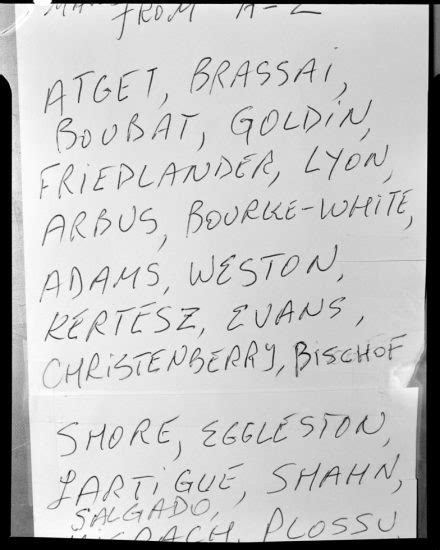 FROM A-Z
ATGET, BRASSAi,
BOUBAT, GOLDiN,
FRiEDLANDER, LYON,
ARBUS, BOURKE-WHiTE,
ADAMS, WESTON,
KERTESZ, EVANS,
CHRiSTENBERRY, BiSCHOF
SHORE, EGGLESTON,
LARTiGUE, SHAHN,
SALGADO,
PLOSSU